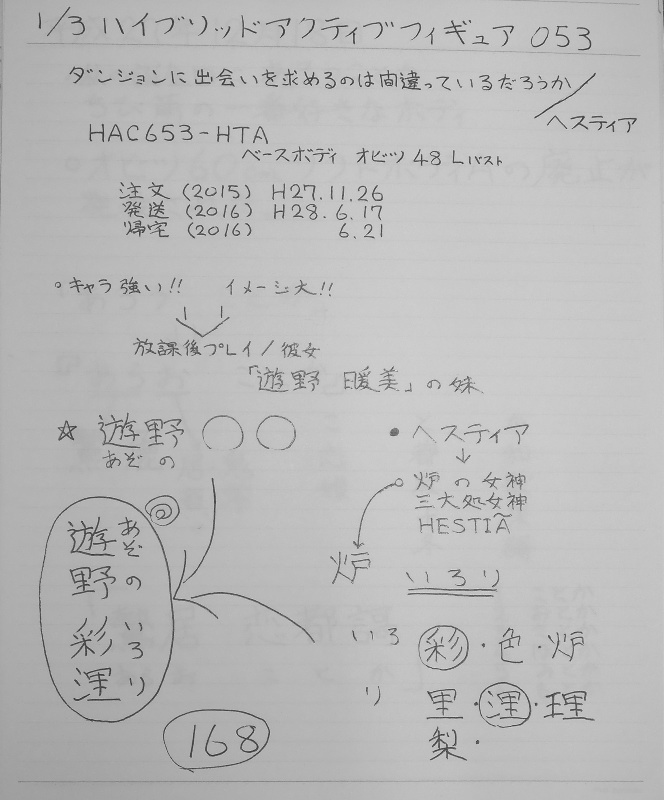 1/3 ハイブリッドアクティブフィギュア 053
ダンジョンに出会いを求めるのは間違っているだろうか/
ヘスティア
HAC653-HTA
ベースボディ オビツ 48 Lバスト
注文 (2015) H27.11.26
発送 (2016) H28.6.17
帰宅 (2016) 6.21
○キャラ強い!! イメージ大!!
放課後プレイ/彼女
「遊野 暖美」の妹
☆ 遊野 ○○
あぞの
● ヘスティア
↓
○ 炉の女神
三大処女神
HESTIÃ
炉 いろり
◎
遊野 彩浬
あぞの いろり
いろ 彩・色・炉
り 里・浬・理
梨・
168